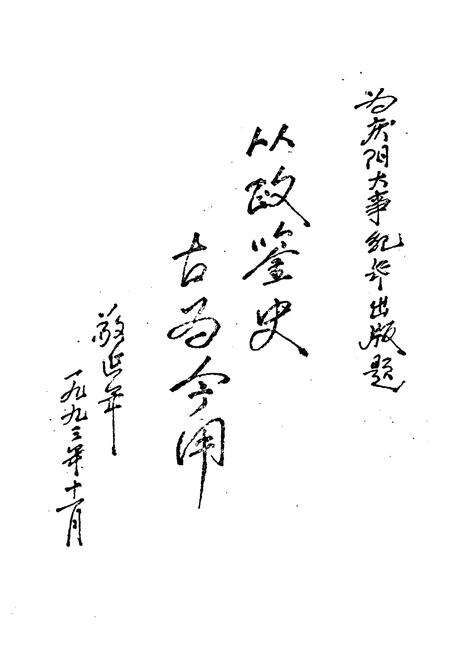 为庆阳大事纪年出版题
从政鉴史
古为今用
敬延年
一九九三年十一月